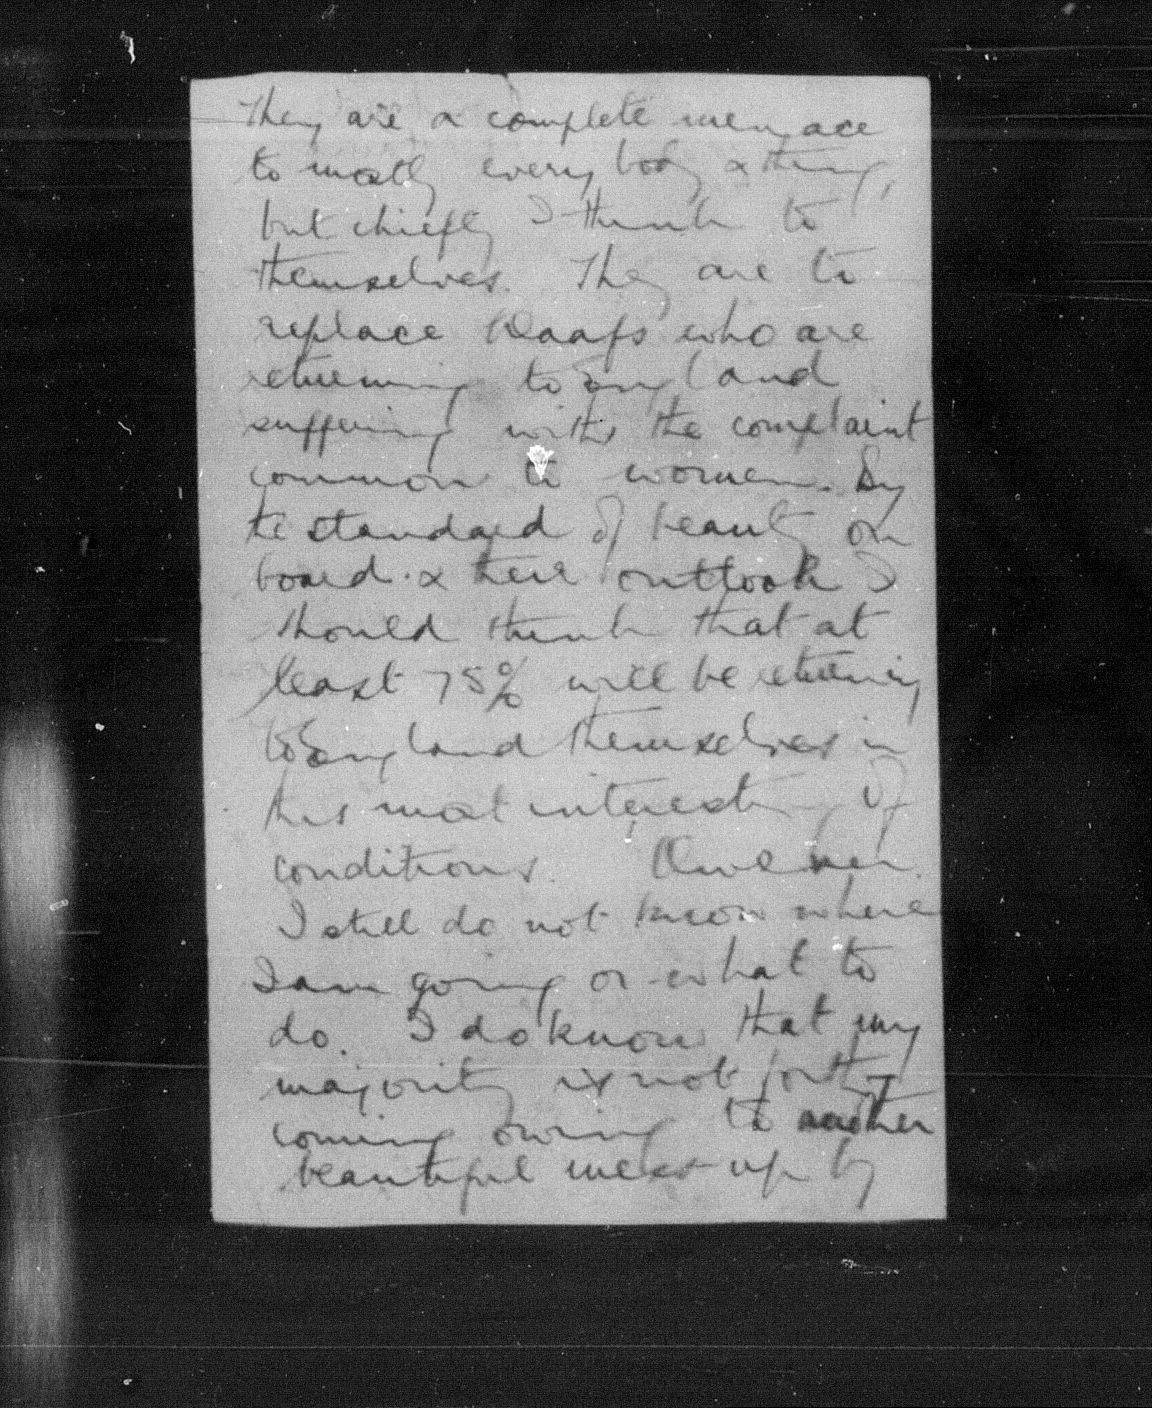 They are a complete menace
to mostly every body & thing,
but chiefly I think to
themselves. They are to
replace Waafs who are
returning to England
suffering with the complaint
common to women. By
the standard of beauty on
board & their outlook I
should think that at
least 75% will be returning
to England themselves in
this most interesting of
conditions.
I still do not know where
I am going or what to
do. I do know that my
majority is not forth-
coming owing to another
beautiful mess up by